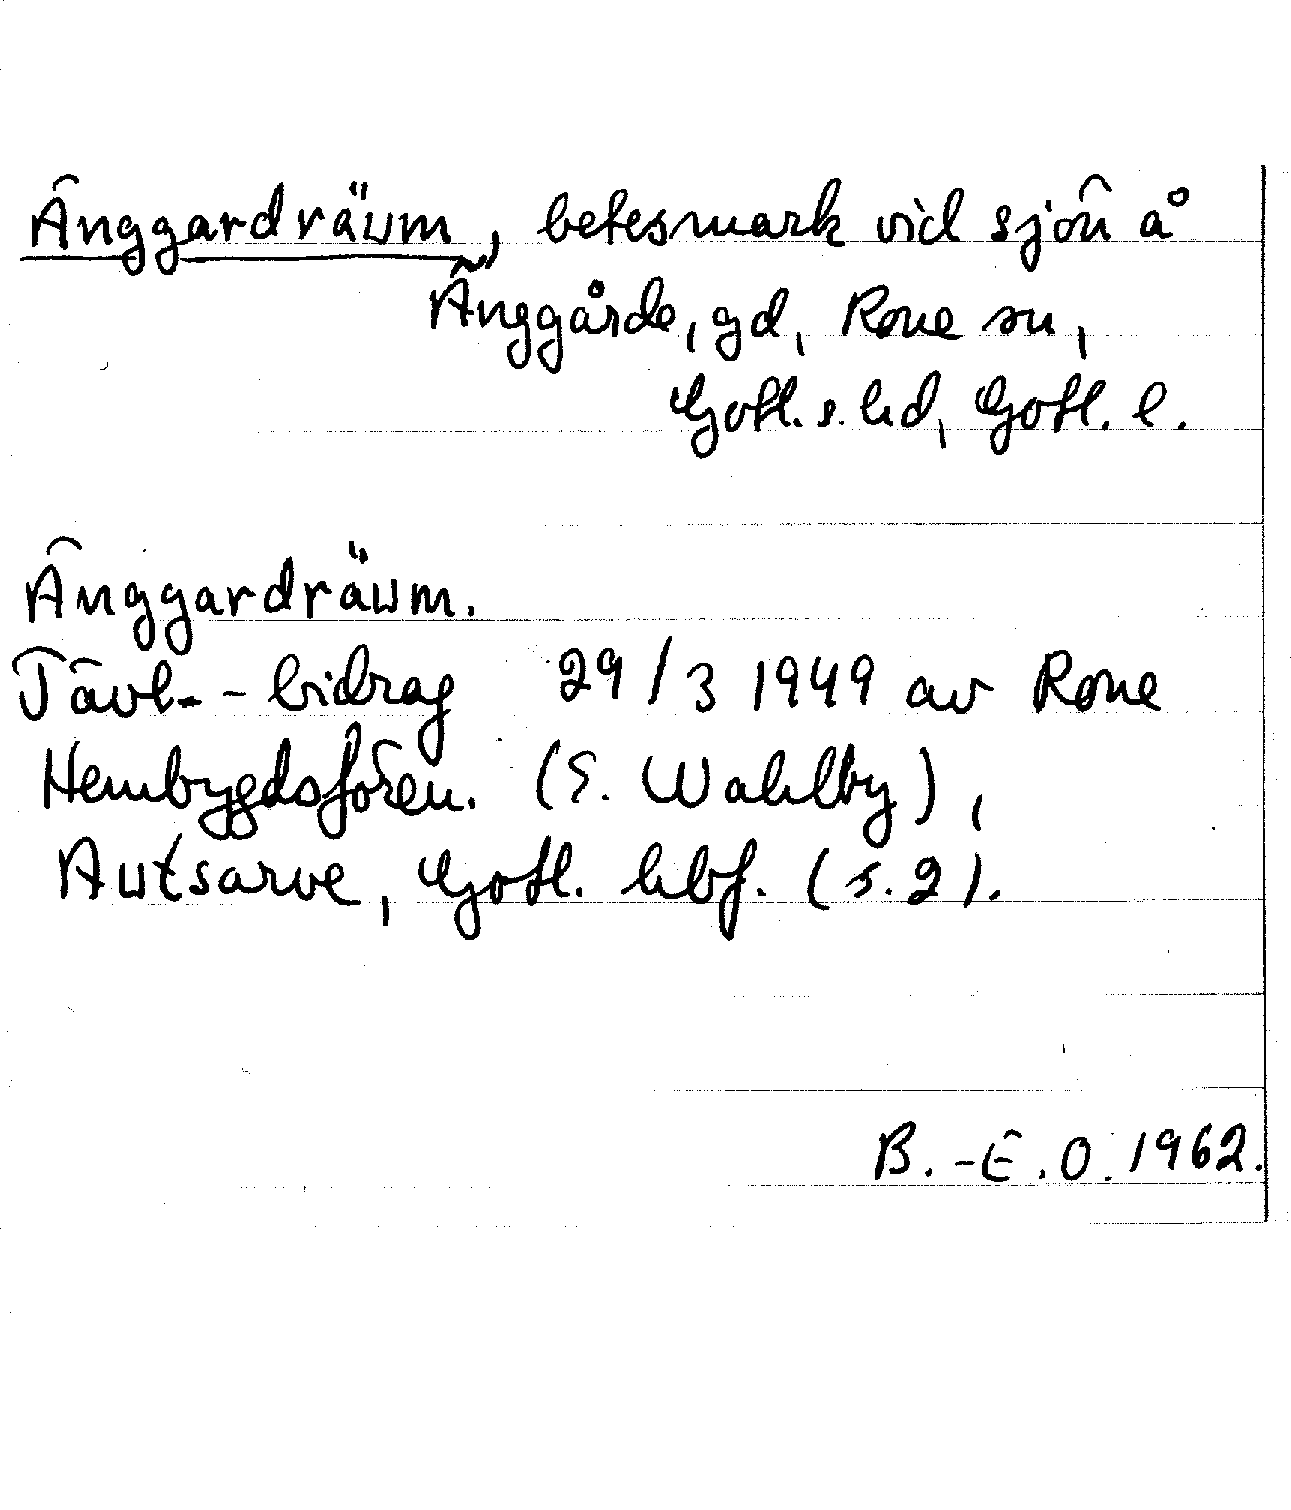 Änggardräum, betesmark vid sjön å
Änggårde, gd, Rone sn,
Gotl. s. hd, Gotl. l.
Änggardräum.
Tävl.-bidrag 29/3 1949 av Rone
Hembygdsfören. (E. Wahlby),
Autsarve, Gotl. hbf. (s.2).
B.-E.O. 1962.